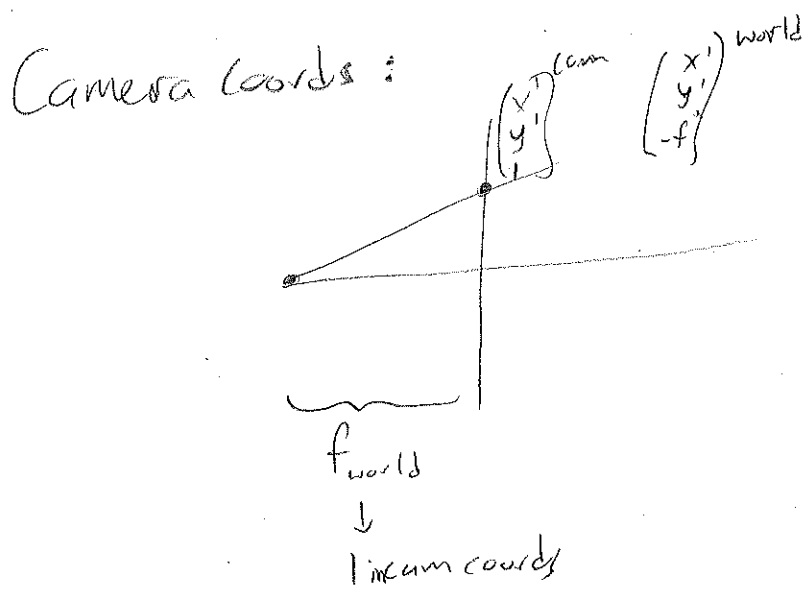 Camera Coords :
(x' y' 1) cam
(x' y' -f) world
f world
↓
1 in cam coords